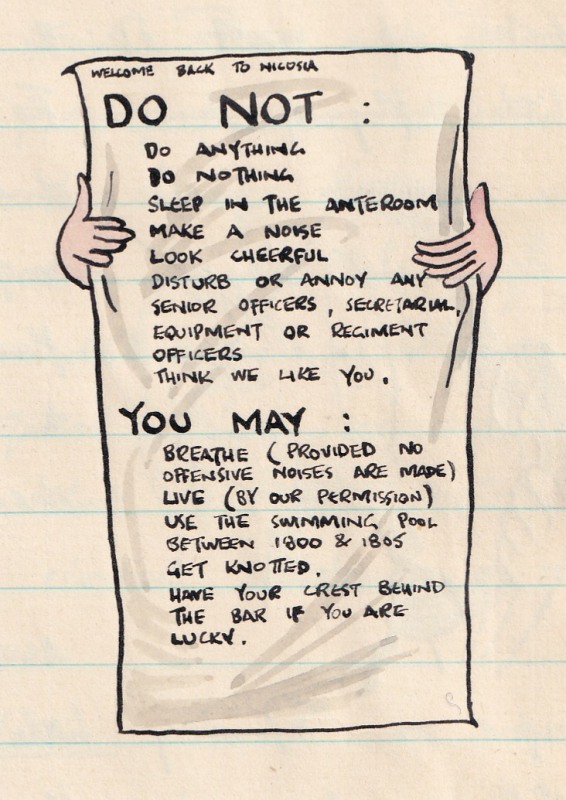 WELCOME BACK TO NICOSIA
DO NOT :
DO ANYTHING
DO NOTHING
SLEEP IN THE ANTEROOM
MAKE A NOISE
LOOK CHEERFUL
DISTURB OR ANNOY ANY
SENIOR OFFICERS, SECRETARIAL,
EQUIPMENT OR REGIMENT
OFFICERS
THINK WE LIKE YOU.
YOU MAY :
BREATHE (PROVIDED NO
OFFENSIVE NOISES ARE MADE)
LIVE (BY OUR PERMISSION)
USE THE SWIMMING POOL
BETWEEN 1800 & 1805
GET KNOTTED.
HAVE YOUR CREST BEHIND
THE BAR IF YOU ARE
LUCKY.